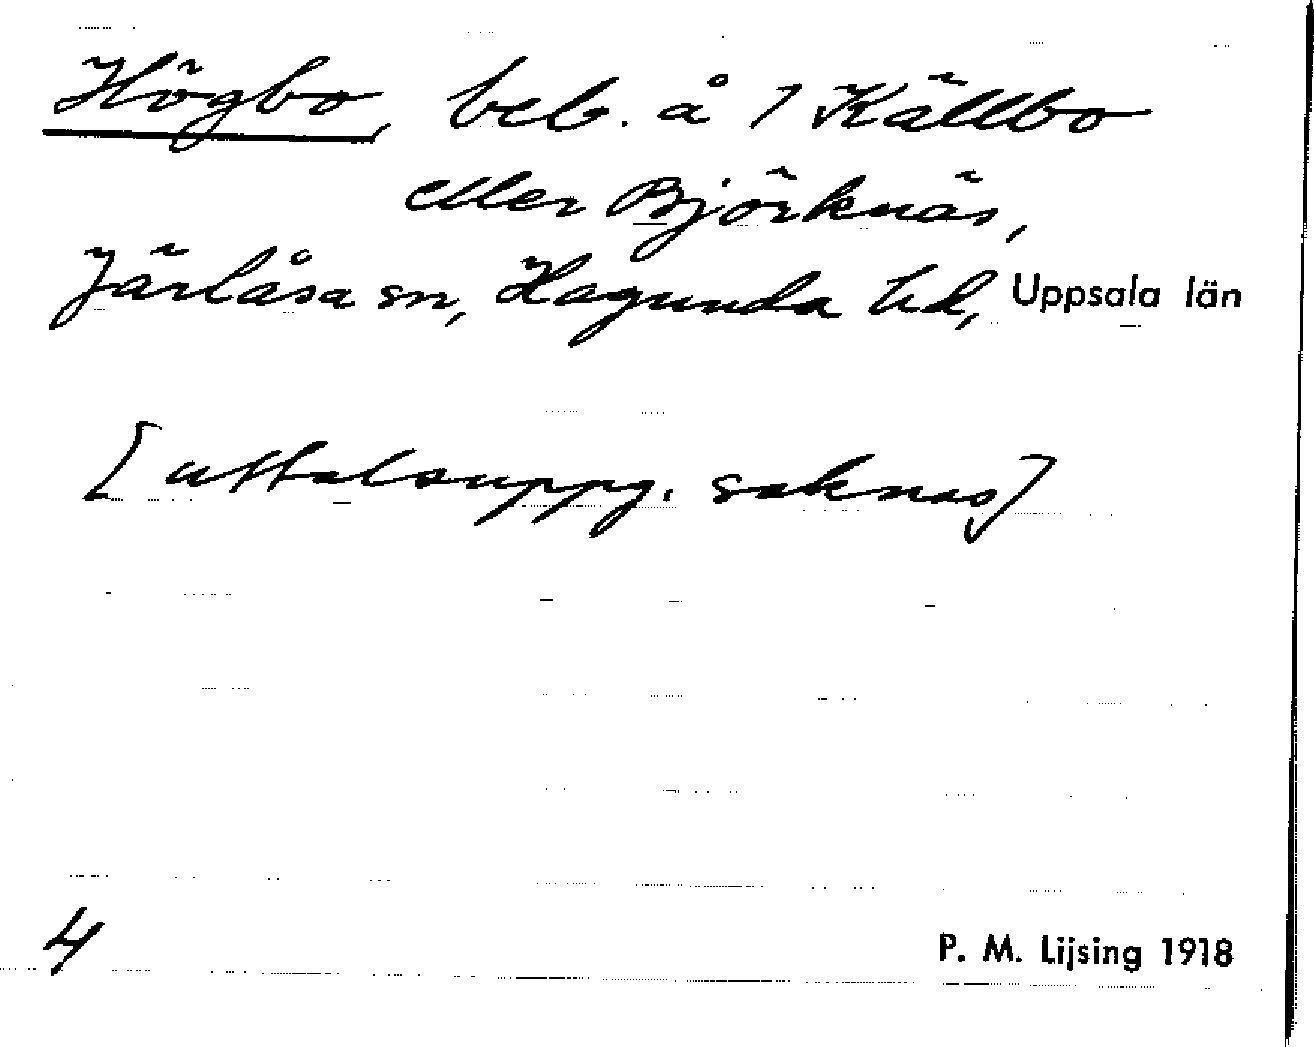 Högbo, beb. å 1 Källbo
eller Björknäs,
Järlåsa sn, Hagunda hd, Uppsala län
[uttalsuppg. saknas]
4
P. M. Lijsing 1918